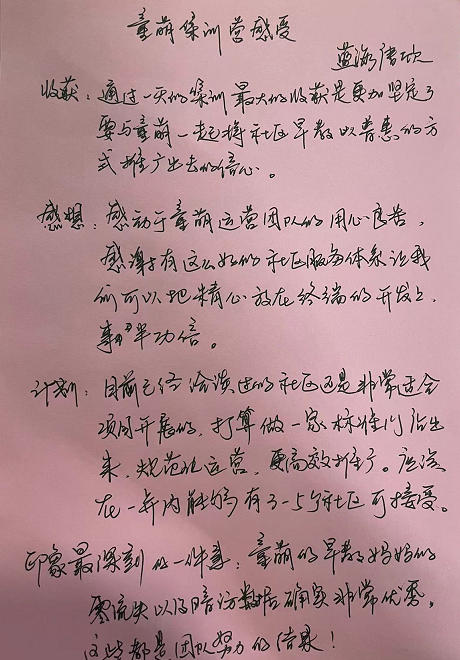 童萌集训营感受
蓝海唐欣
收获：通过一天的集训最大的收获是更加坚定了
要与童萌一起将社区早教以普惠的方
式推广出去的信心。
感想：感动于童萌运营团队的用心良苦，
感谢有这么好的社区服务体系让我
们可以把精心放在终端的开发上，
事半功倍。
计划：目前已经洽谈过的社区还是非常适合
项目开展的，打算做一家标准门店出
来，规范化运营，更高效推广。应该
在一年内能够有3-5个社区可接受。
印象最深刻的一件事：童萌的早教妈妈的
零流失以及暗访数据确实非常优秀，
这些都是团队努力的结果！